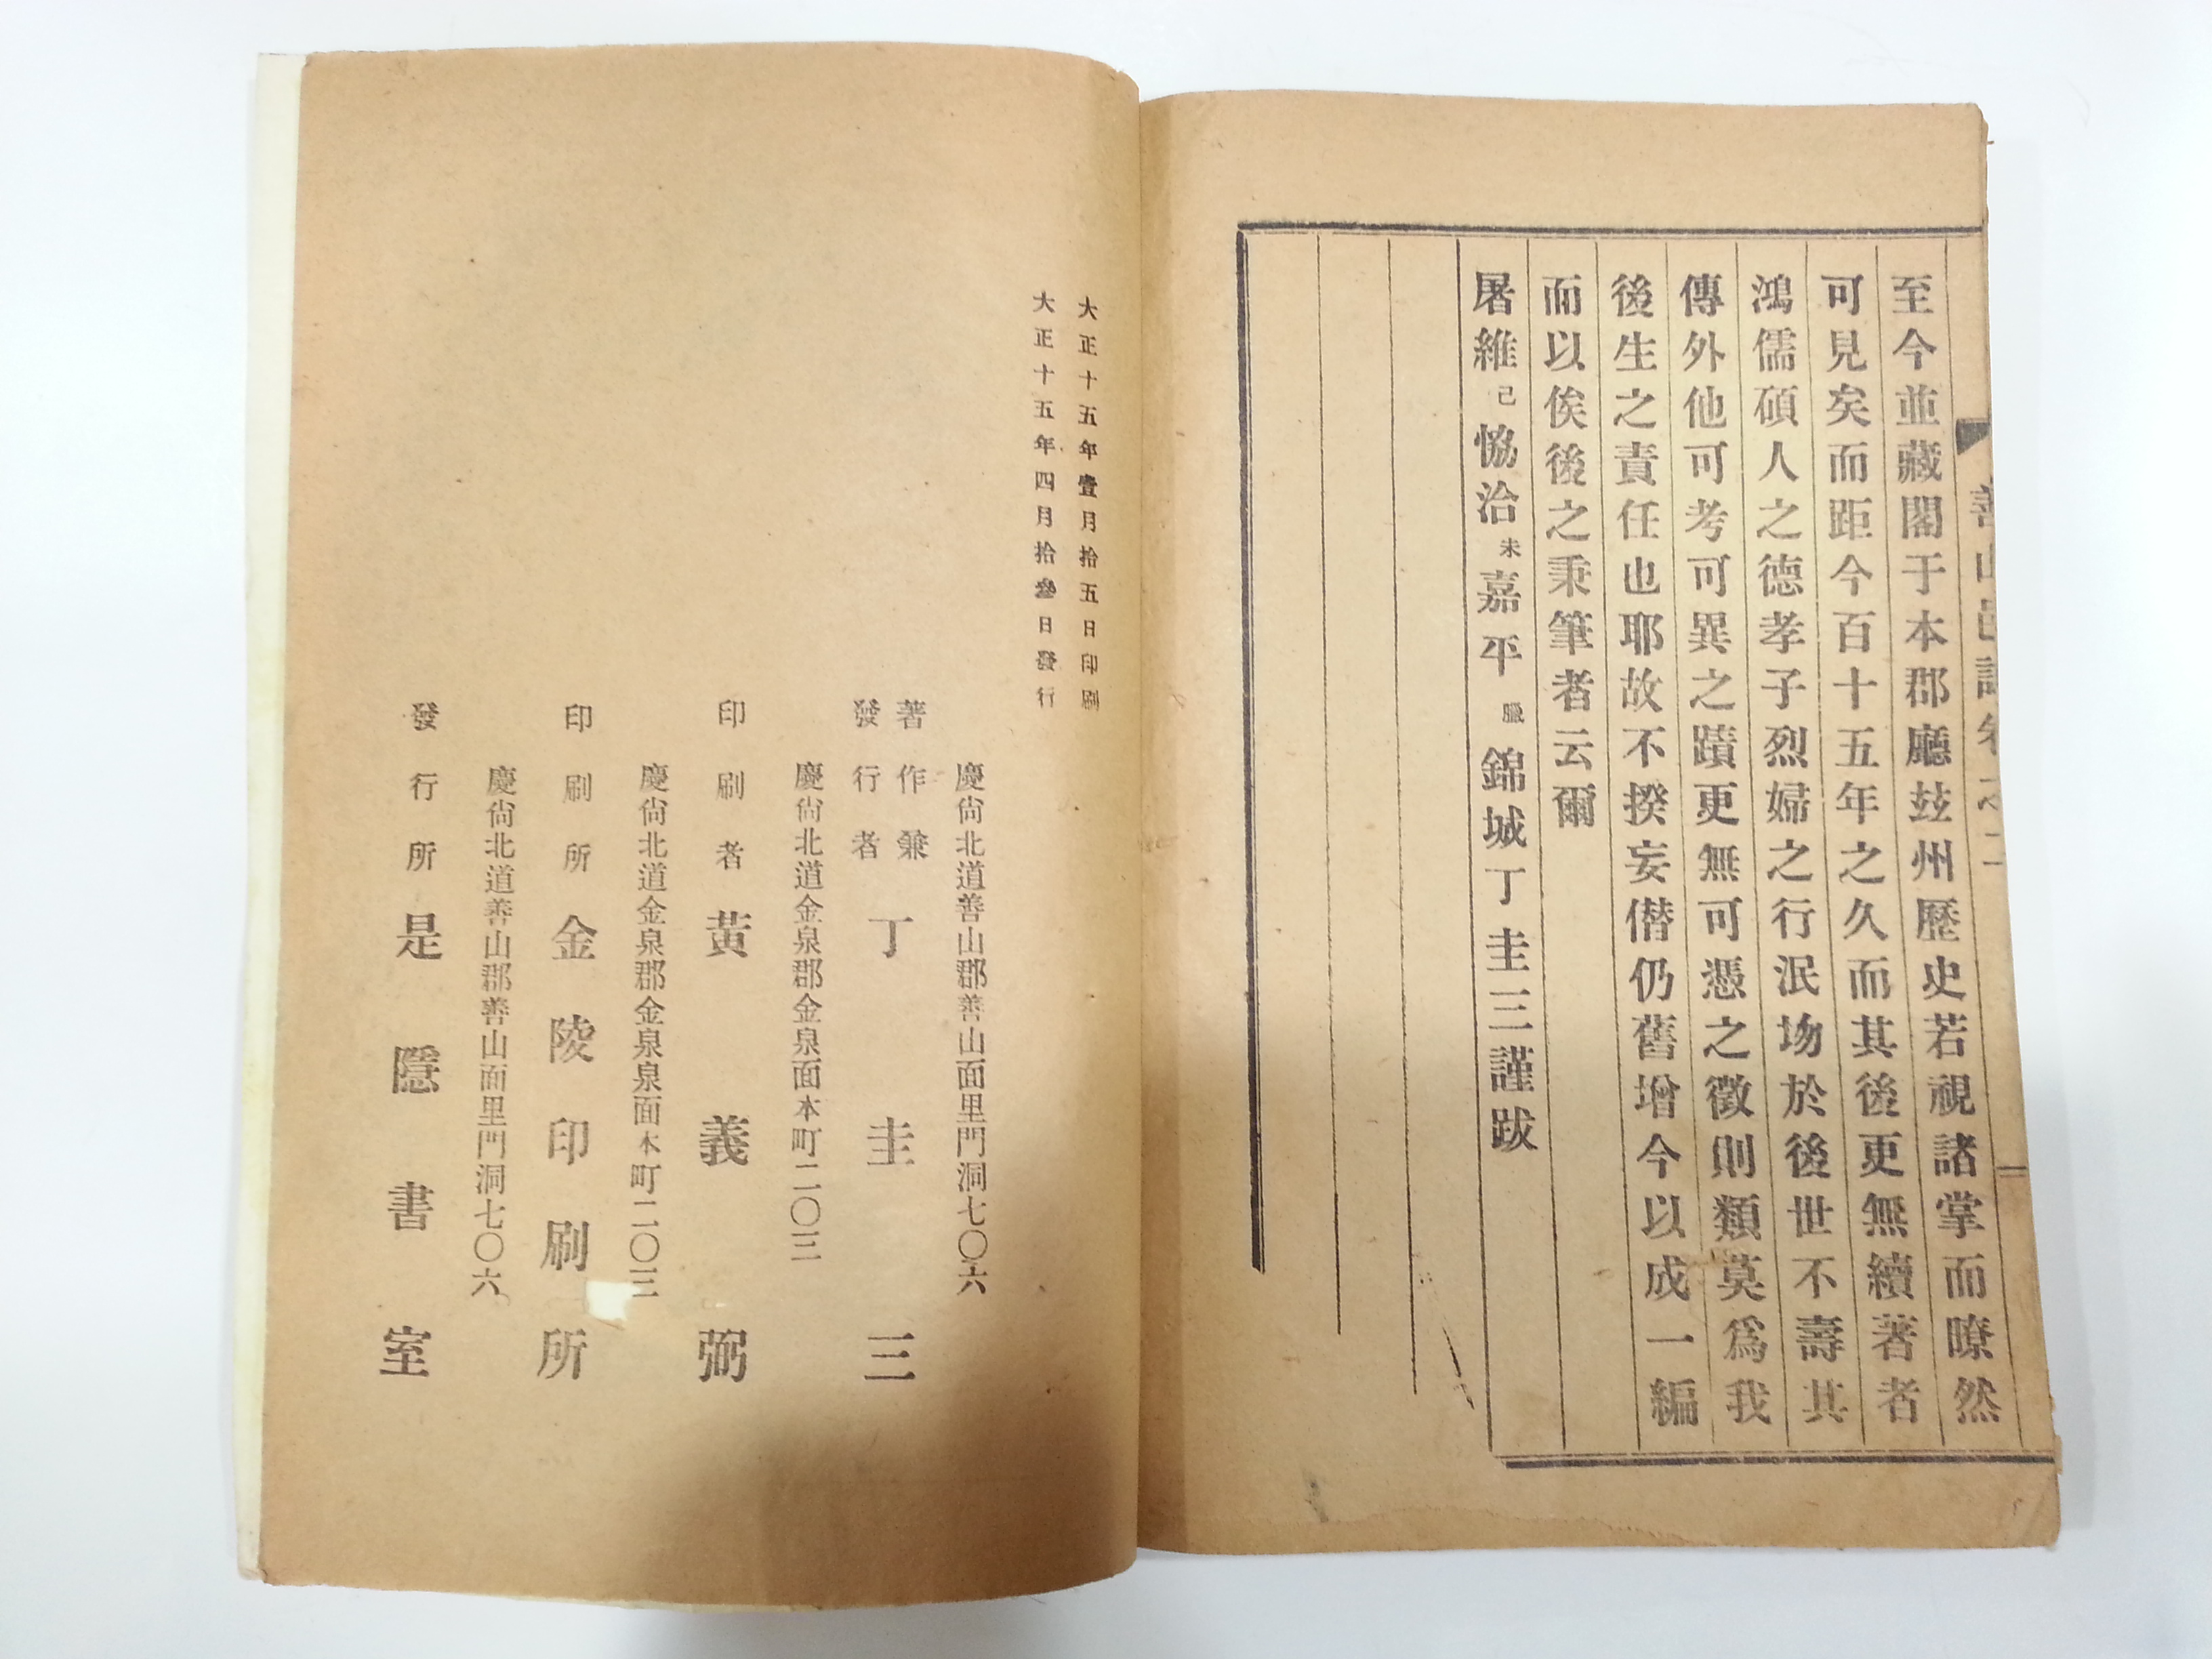 善山邑誌卷之二
至今並藏閣于本郡廳玆州歷史若視諸掌而瞭然
可見矣而距今百十五年之久而其後更無續著者
鴻儒碩人之德孝子烈婦之行泯塲於後世不壽其
傳外他可考可異之蹟更無可憑之徵則類莫爲我
後生之責任也耶故不揆妄僭仍舊增今以成一編
而以俟後之秉筆者云爾
屠維己恊洽未嘉平臘錦城丁圭三謹跋
大正十五年壹月拾五日印刷
大正十五年四月拾叄日發行
慶尙北道善山郡善山面里門洞七〇六
著作兼
發行者
丁圭三
慶尙北道金泉郡金泉面本町二〇三
印刷者 黃義弼
慶尙北道金泉郡金泉面本町二〇三
印刷所 金陵印刷所
慶尙北道善山郡善山面里門洞七〇六
發行所 是隱書室